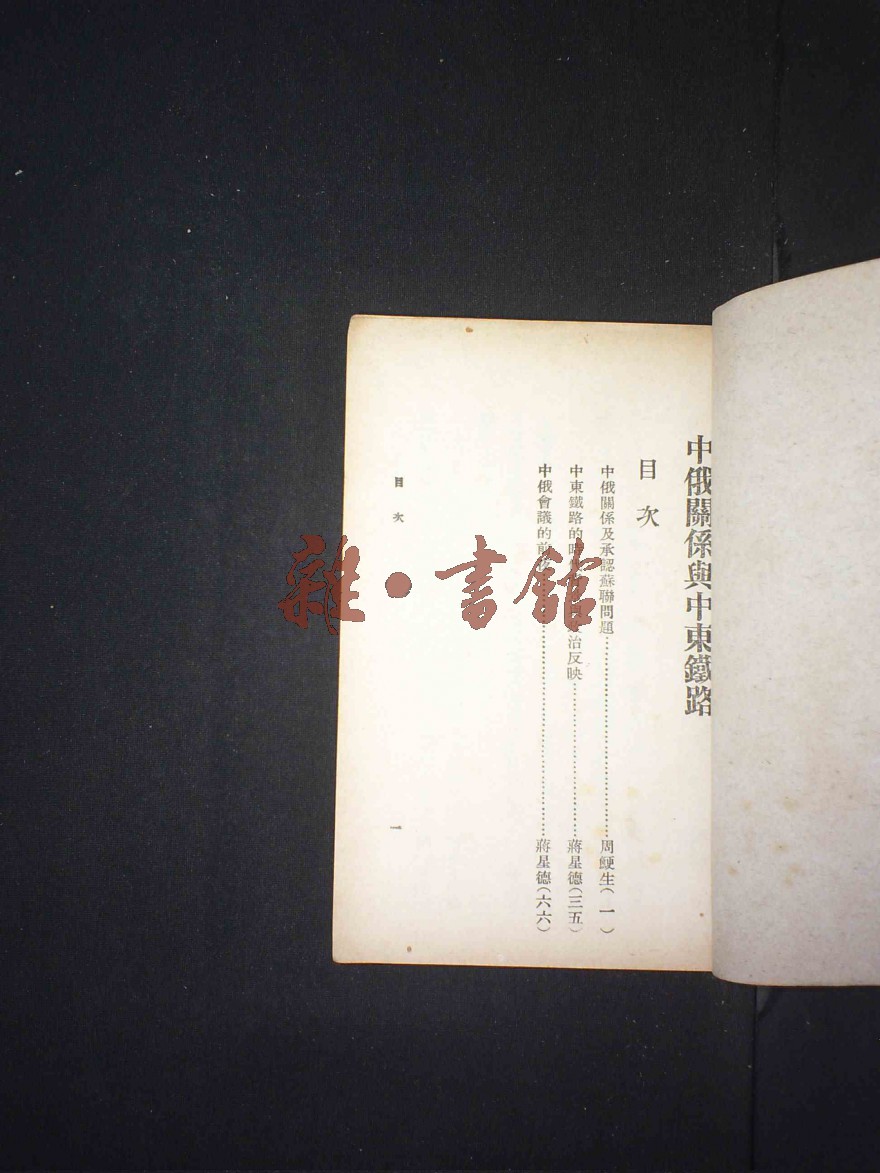 中俄關係與中東鐵路
目次
中俄關係及承認蘇聯問題……周鯁生(一)
中東鐵路的 治反映……蔣星德(三五)
中俄會議的前……蔣星德(六六)
目次
一
雜·書館